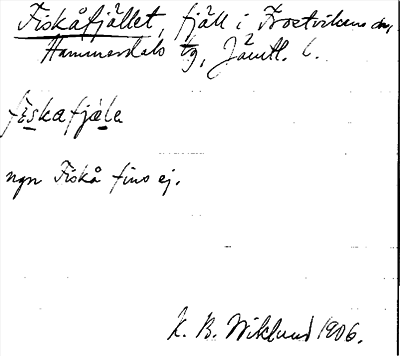 Fiskåfjället, fjäll i Frostvikens sn,
Hammerdals tg, Jämtl. l.
fiskafjæle
ngn Fiskå fins ej.
K. B. Wiklund 1906.